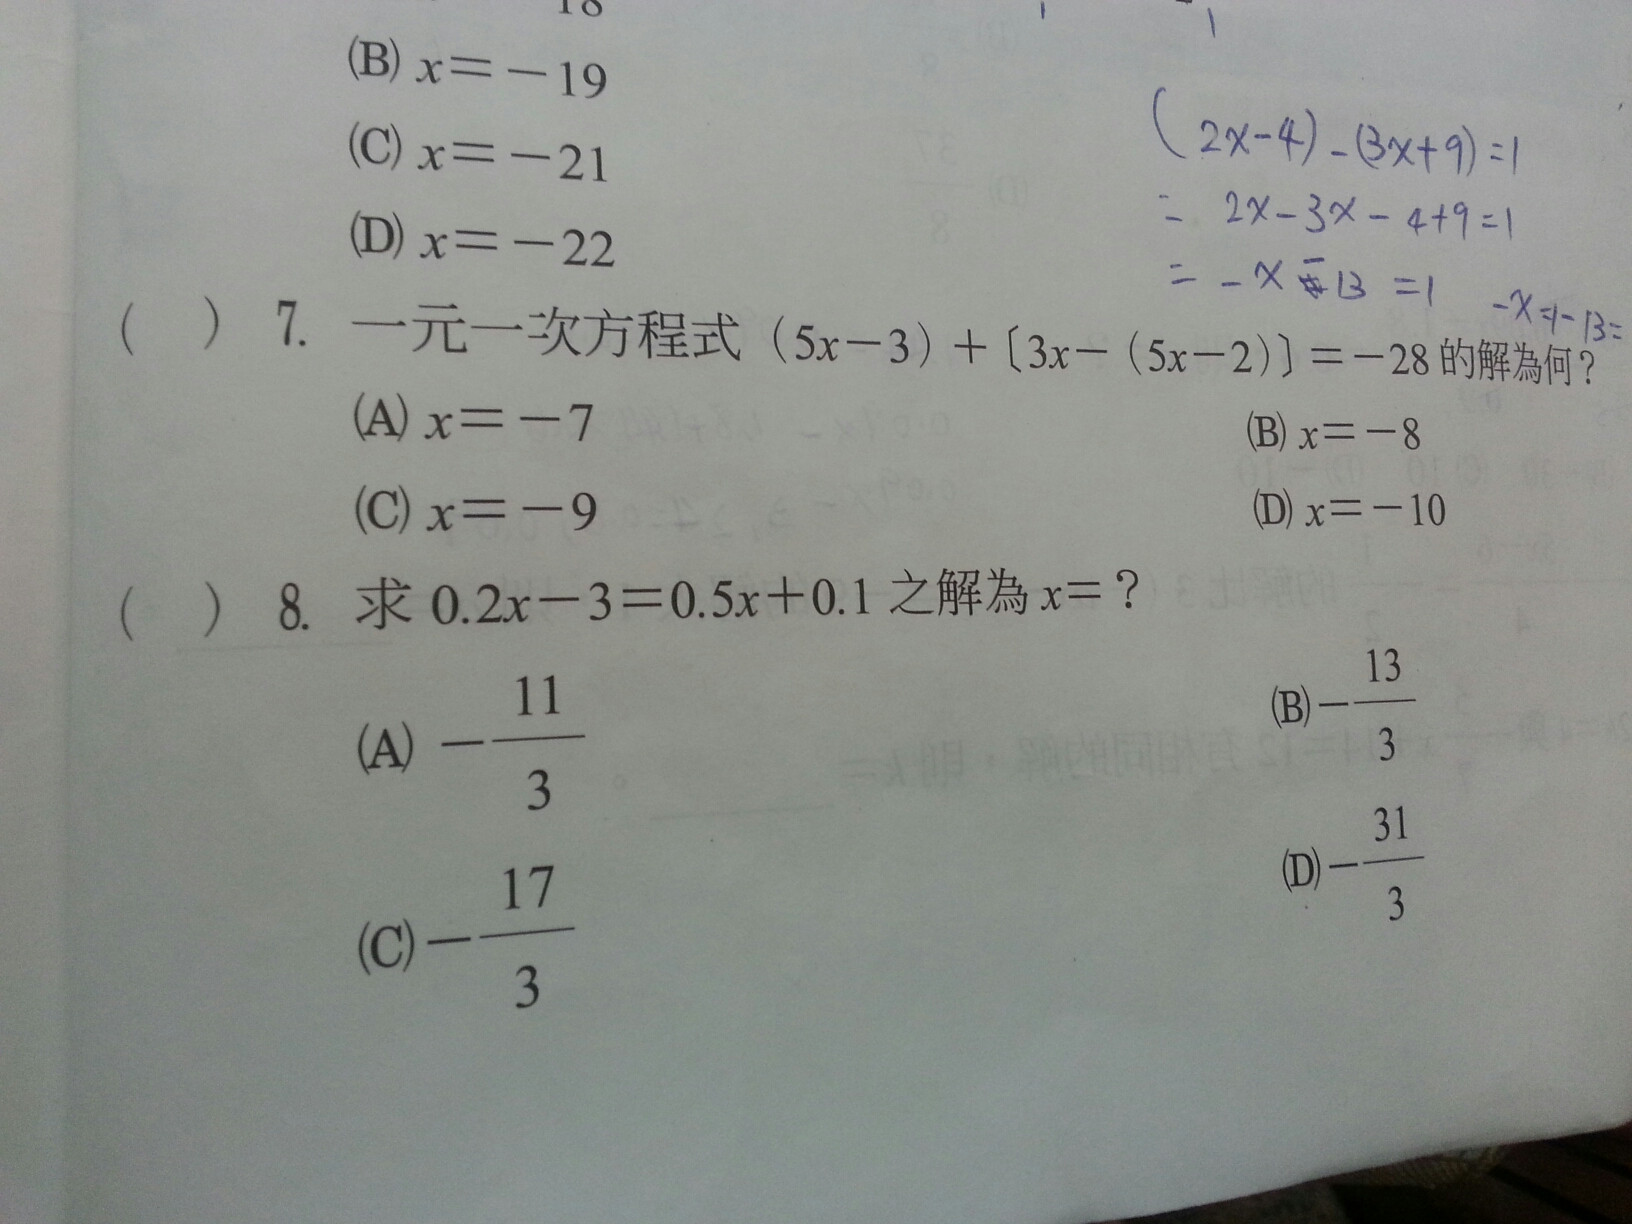 18
(B) x=-19
(C) x=-21
(D) x=-22
(2x-4)-(3x+9)=1
= 2x-3x-4+9=1
= -x-13=1 -x=1-13=
( ) 7. 一元一次方程式（5x-3）+〔3x-（5x-2）〕=-28 的解為何？
(A) x=-7 (B) x=-8
(C) x=-9 (D) x=-10
( ) 8. 求 0.2x-3=0.5x+0.1 之解為 x=？
(A) -11/3 (B) -13/3
(C) -17/3 (D) -31/3